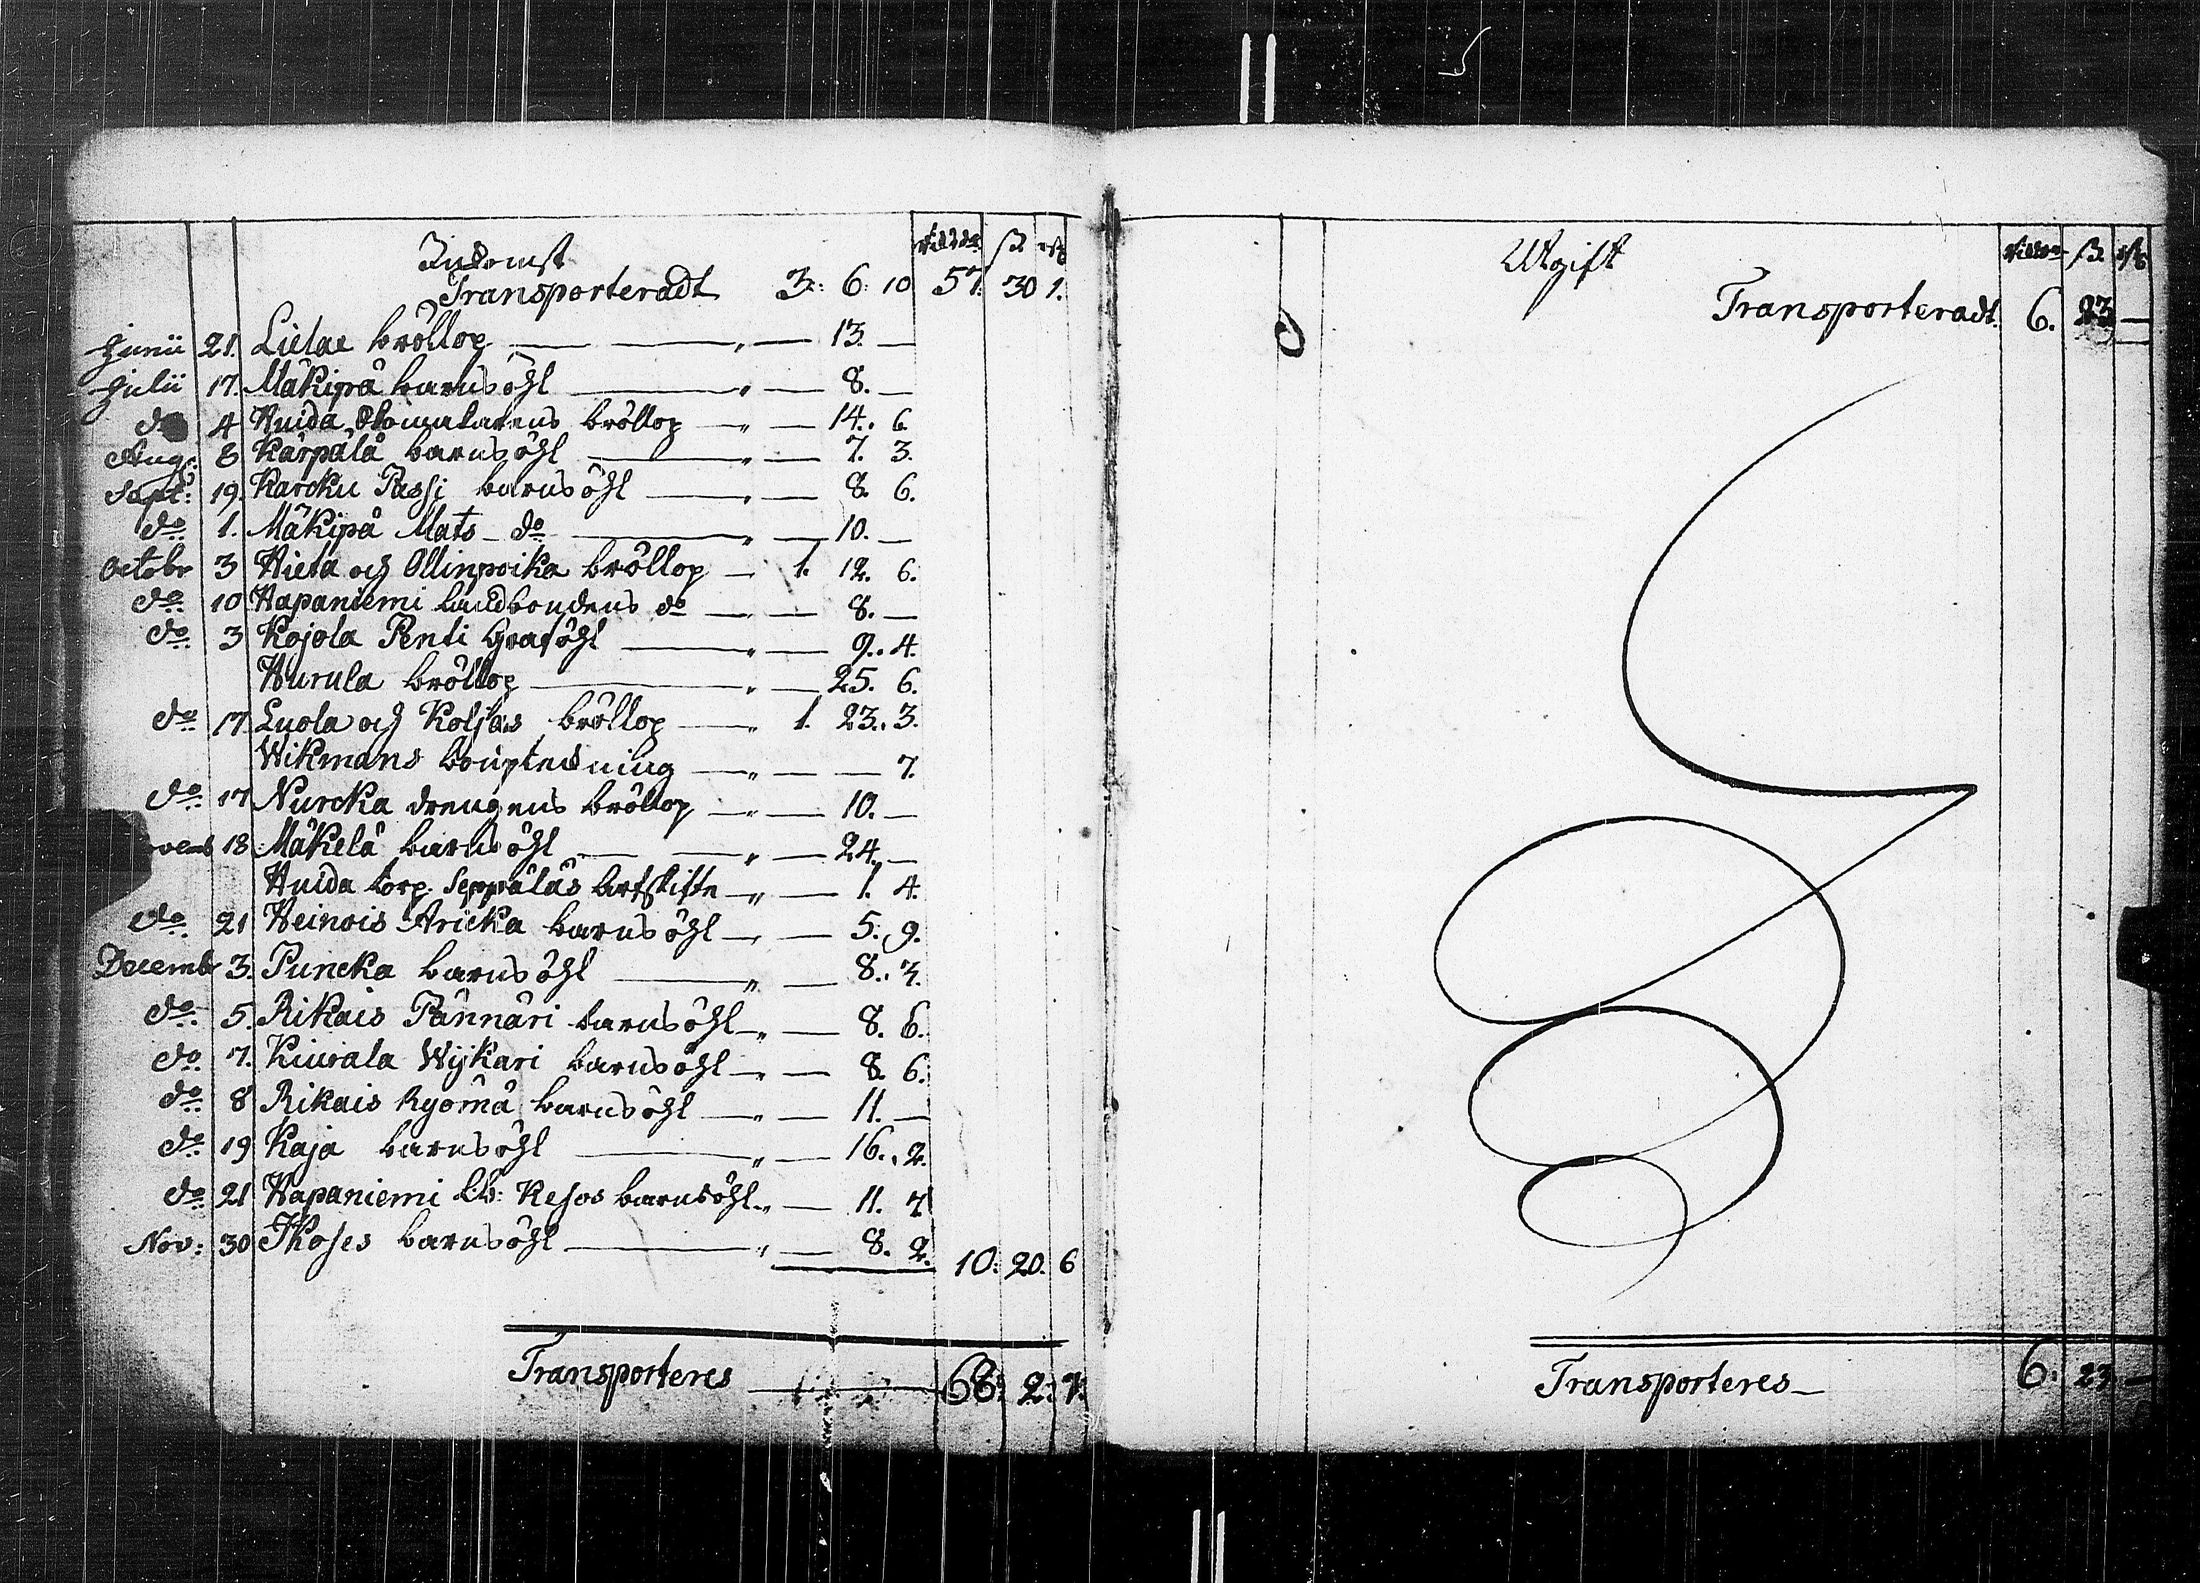 Inkomst
Riksdr ß rst
Transporteradt 3: 6: 10 57. 30 1.
Junii 21. Lielax bröllop — — „ — 13. —
Julii 17. Mäkipä barnsöhl — „ — 8. —
do 4 Huida bröllop — „ — 14. 6.
Aug: 8 Kärpälä barnsöhl — „ — 7. 3.
Sept: 19. Karcku Passi barnsöhl — „ — 8. 6.
do 1. Mäkipä Mats do — „ — 10. —
Octobr 3 Hieta och Ollinpoika bröllop — 1. 12. 6.
do 10 Hapaniemi landbondens do — „ — 8. —
do 3 Kojola Penti Graföhl — „ — 9. 4.
Hurula bröllop — „ — 25. 6.
do 17. Luola och Koljas bröllop — 1. 23. 3.
Wikmans boupteckning — „ — — 7.
do 17 Nurcka drengens bröllop — „ — 10. —
ovemb 18. Mäkelä barnsöhl — — „ — 24. —
Huida torp. Seppäläs arfskifte — „ — 1. 4.
do 21 Heinois Aricka barnsöhl — „ — 5. 9.
Decembr 3. Puncka barnsöhl — „ — 8. 3.
do 5. Rikais Pännäri barnsöhl — „ — 8. 6.
do 7. Kiurala Wijkari barnsöhl — „ — 8. 6.
do 8 Rikais Ryömä barnsöhl — „ — 11. —
do 19 Kaja barnsöhl — „ — 16. 2.
do 21 Hapaniemi Lb: Kesos barnsöhl „ — 11. 7.
Nov: 30 Ihoses barnsöhl — „ — 8. 2. 10: 20. 6
Transporteres — 68: 2: 7.
Utgift
Riksdr ß rst
Transporteradt. 6. 23 —
Transporteres — 6: 23 —